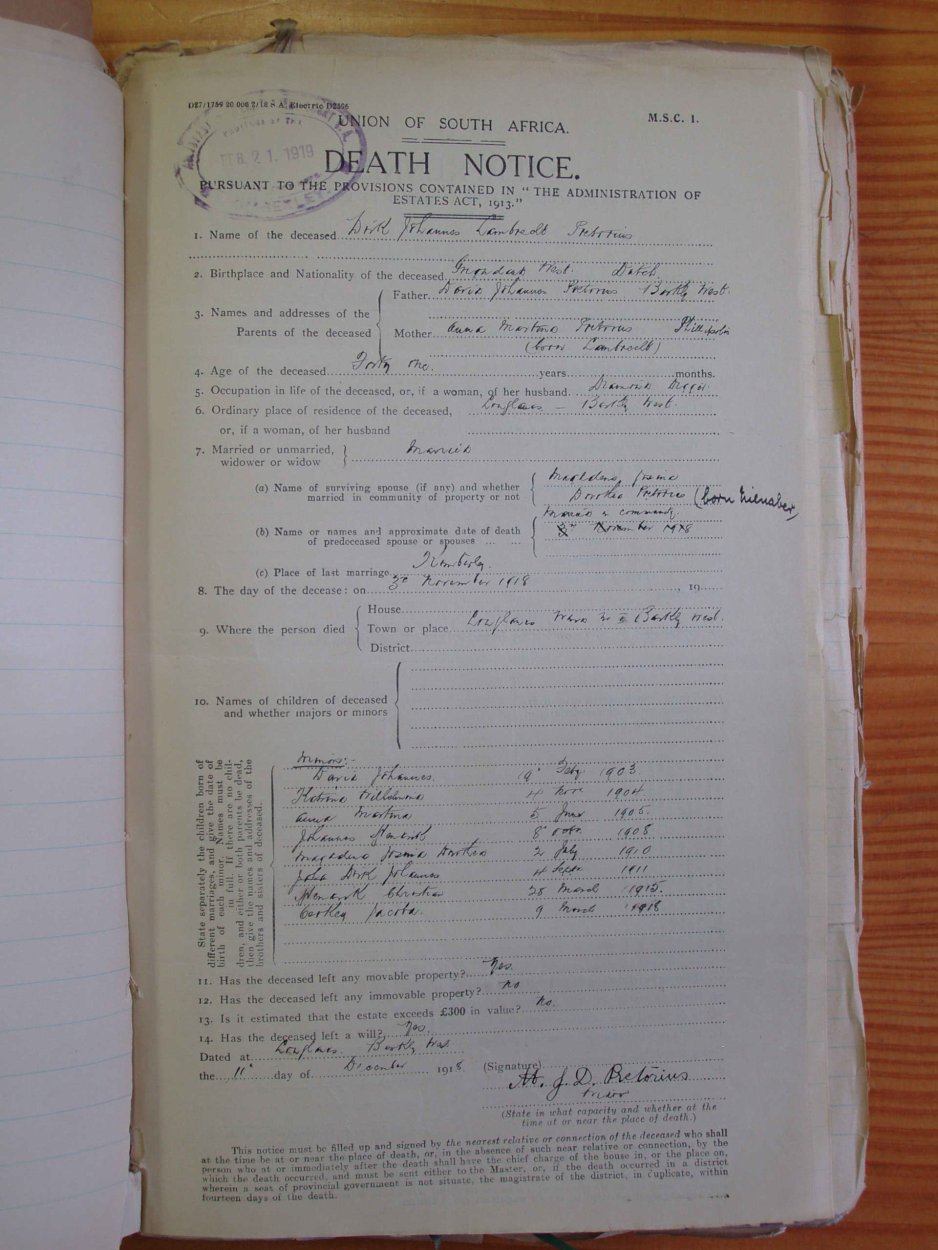 D27/1759 20 000 2/18 S.A. Electric D2596
UNION OF SOUTH AFRICA.
M.S.C. 1.
FEB. 21. 1919
DEATH NOTICE.
PURSUANT TO THE PROVISIONS CONTAINED IN "THE ADMINISTRATION OF
ESTATES ACT, 1913."
1. Name of the deceased Dirk Johannes Lambrecht Pretorius
2. Birthplace and Nationality of the deceased Griqualand West. Dutch
3. Names and addresses of the
Parents of the deceased
Father David Johannes Pretorius Barkly West.
Mother Anna Martina Pretorius Phillipolis
(born Lambrecht)
4. Age of the deceased Forty one years months.
5. Occupation in life of the deceased, or, if a woman, of her husband Diamond Digger
6. Ordinary place of residence of the deceased, Longlands - Barkly West
or, if a woman, of her husband
7. Married or unmarried, widower or widow Married
(a) Name of surviving spouse (if any) and whether
married in community of property or not
Magdalena Josina
Dorothea Pretorius (born Nienaber)
Married in community.
(b) Name or names and approximate date of death
of predeceased spouse or spouses ... ...
3rd November 1918
(c) Place of last marriage Kimberley.
8. The day of the decease: on 3rd November 1918, 19
9. Where the person died
House
Town or place Longlands Ward Barkly West.
District
10. Names of children of deceased
and whether majors or minors
State separately the children born of
different marriages, and give the date of
birth of each minor. Names must be
in full. If there are no chil-
dren, and either or both parents be dead,
then give the names and addresses of the
brothers and sisters of deceased.
Minors:-
David Johannes. 19 Feby 1903
Katrina Wilhelmina 4 Nov 1904
Anna Martina 5 June 1905.
Johannes Hendrik 8 Octr. 1908
Magdalena Josina Dorothea 2 July 1910
Dirk Johannes 4 Septr. 1911
Hendrik Christian 28 March 1915.
Jacoba. 9 March 1918
11. Has the deceased left any movable property? Yes.
12. Has the deceased left any immovable property? No
13. Is it estimated that the estate exceeds £300 in value? No.
14. Has the deceased left a will? Yes.
Dated at Longlands. Barkly West
the 11th day of December 1918
(Signature) M. J. D. Pretorius
Widow
(State in what capacity and whether at the
time at or near the place of death.)
This notice must be filled up and signed by the nearest relative or connection of the deceased who shall
at the time be at or near the place of death, or, in the absence of such near relative or connection, by the
person who at or immediately after the death shall have the chief charge of the house in, or the place on,
which the death occurred, and must be sent either to the Master, or, if the death occurred in a district
wherein a seat of provincial government is not situate, the magistrate of the district, in duplicate, within
fourteen days of the death.